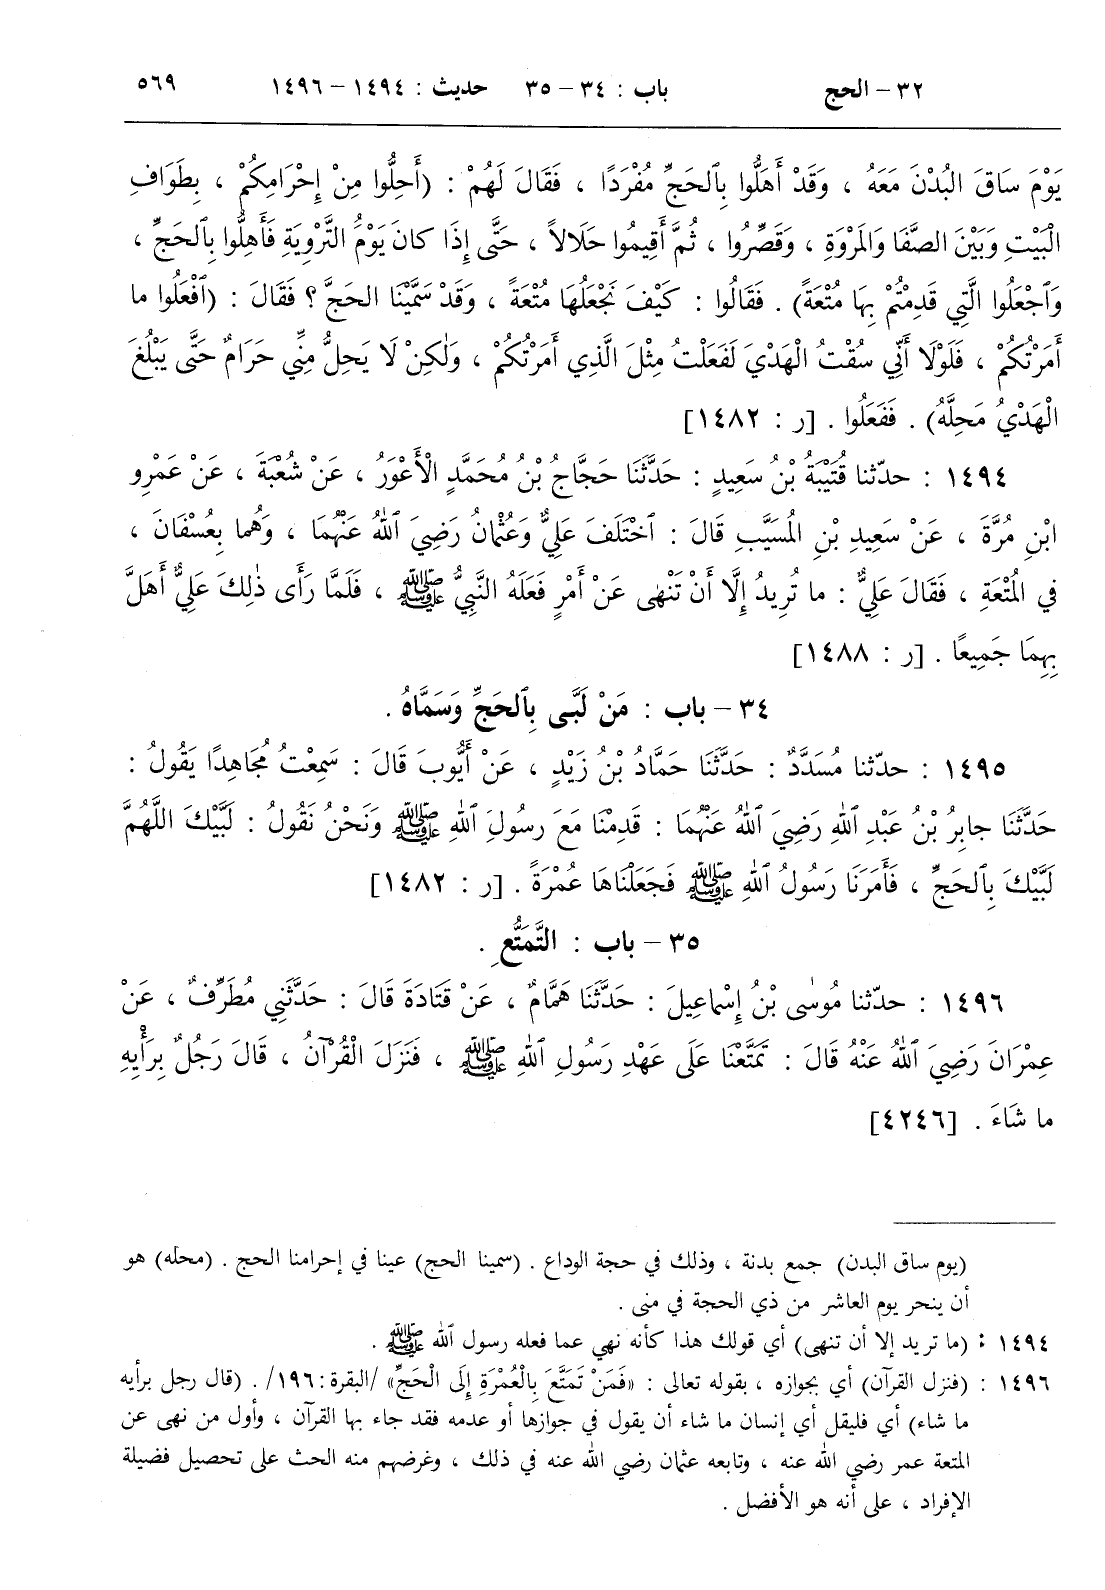 ٣٢ – الحج باب : ٣٤ – ٣٥ حديث : ١٤٩٤ – ١٤٩٦ ٥٦٩
يَوْمَ سَاقَ البُدْنَ مَعَهُ ، وَقَدْ أَهَلُّوا بِٱلحَجِّ مُفْرَدًا ، فَقَالَ لَهُمْ : (أَحِلُّوا مِنْ إِحْرَامِكُمْ ، بِطَوَافِ
الْبَيْتِ وَبَيْنَ الصَّفَا وَالمَرْوَةِ ، وَقَصِّرُوا ، ثُمَّ أَقِيمُوا حَلَالاً ، حَتَّى إِذَا كانَ يَوْمُ التَّرْوِيَةِ فَأَهِلُّوا بِالحَجِّ ،
وَٱجْعَلُوا الَّتِي قَدِمْتُمْ بِهَا مُتْعَةً) . فَقَالُوا : كَيْفَ نَجْعَلُهَا مُتْعَةً ، وَقَدْ سَمَّيْنَا الحَجَّ ؟ فَقَالَ : (ٱفْعَلُوا ما
أَمَرْتُكُمْ ، فَلَوْلَا أَنِّي سُقْتُ الْهَدْيَ لَفَعَلْتُ مِثْلَ الَّذِي أَمَرْتُكُمْ ، وَلٰكِنْ لَا يَحِلُّ مِنِّي حَرَامٌ حَتَّى يَبْلُغَ
الْهَدْيُ مَحِلَّهُ) . فَفَعَلُوا . [ر : ١٤٨٢]
١٤٩٤ : حدّثنا قُتَيْبَةُ بْنُ سَعِيدٍ : حَدَّثَنَا حَجَّاجُ بْنُ مُحَمَّدٍ الْأَعْوَرُ ، عَنْ شُعْبَةَ ، عَنْ عَمْرِو
ابْنِ مُرَّةَ ، عَنْ سَعِيدِ بْنِ المُسَيَّبِ قَالَ : ٱخْتَلَفَ عَلِيٌّ وَعُثْمانُ رَضِيَ ٱللهُ عَنْهُمَا ، وَهُما بِعُسْفَانَ ،
فِي المُتْعَةِ ، فَقَالَ عَلِيٌّ : ما تُرِيدُ إِلَّا أَنْ تَنْهٰى عَنْ أَمْرٍ فَعَلَهُ النَّبِيُّ ﷺ ، فَلَمَّا رَأَى ذٰلِكَ عَلِيٌّ أَهَلَّ
بِهِمَا جَمِيعًا . [ر : ١٤٨٨]
٣٤ – باب : مَنْ لَبَّى بِٱلحَجِّ وَسَمَّاهُ .
١٤٩٥ : حدّثنا مُسَدَّدٌ : حَدَّثَنَا حَمَّادُ بْنُ زَيْدٍ ، عَنْ أَيُّوبَ قَالَ : سَمِعْتُ مُجَاهِدًا يَقُولُ :
حَدَّثَنَا جابِرُ بْنُ عَبْدِ ٱللهِ رَضِيَ ٱللهُ عَنْهُمَا : قَدِمْنَا مَعَ رسولِ ٱللهِ ﷺ وَنَحْنُ نَقُولُ : لَبَّيْكَ اللَّهُمَّ
لَبَّيْكَ بِٱلحَجِّ ، فَأَمَرَنَا رَسُولُ ٱللهِ ﷺ فَجَعَلْنَاهَا عُمْرَةً . [ر : ١٤٨٢]
٣٥ – باب : التَّمَتُّعِ .
١٤٩٦ : حدّثنا مُوسٰى بْنُ إِسْماعِيلَ : حَدَّثَنَا هَمَّامٌ ، عَنْ قَتَادَةَ قَالَ : حَدَّثَنِي مُطَرِّفٌ ، عَنْ
عِمْرَانَ رَضِيَ ٱللهُ عَنْهُ قَالَ : تَمَتَّعْنَا عَلَى عَهْدِ رَسُولِ ٱللهِ ﷺ ، فَنَزَلَ الْقُرْآنُ ، قَالَ رَجُلٌ بِرَأْيِهِ
ما شَاءَ . [٤٢٤٦]
(يوم ساق البدن) جمع بدنة ، وذلك في حجة الوداع . (سمينا الحج) عينا في إحرامنا الحج . (محله) هو
أن ينحر يوم العاشر من ذي الحجة في منى .
١٤٩٤ : (ما تريد إلا أن تنهى) أي قولك هذا كأنه نهي عما فعله رسول ٱلله ﷺ .
١٤٩٦ : (فنزل القرآن) أي بجوازه ، بقوله تعالى : «فَمَنْ تَمَتَّعَ بِالْعُمْرَةِ إِلَى الْحَجِّ» /البقرة : ١٩٦/ . (قال رجل برأيه
ما شاء) أي فليقل أي إنسان ما شاء أن يقول في جوازها أو عدمه فقد جاء بها القرآن ، وأول من نهى عن
المتعة عمر رضي الله عنه ، وتابعه عثمان رضي الله عنه في ذلك ، وغرضهم منه الحث على تحصيل فضيلة
الإفراد ، على أنه هو الأفضل .